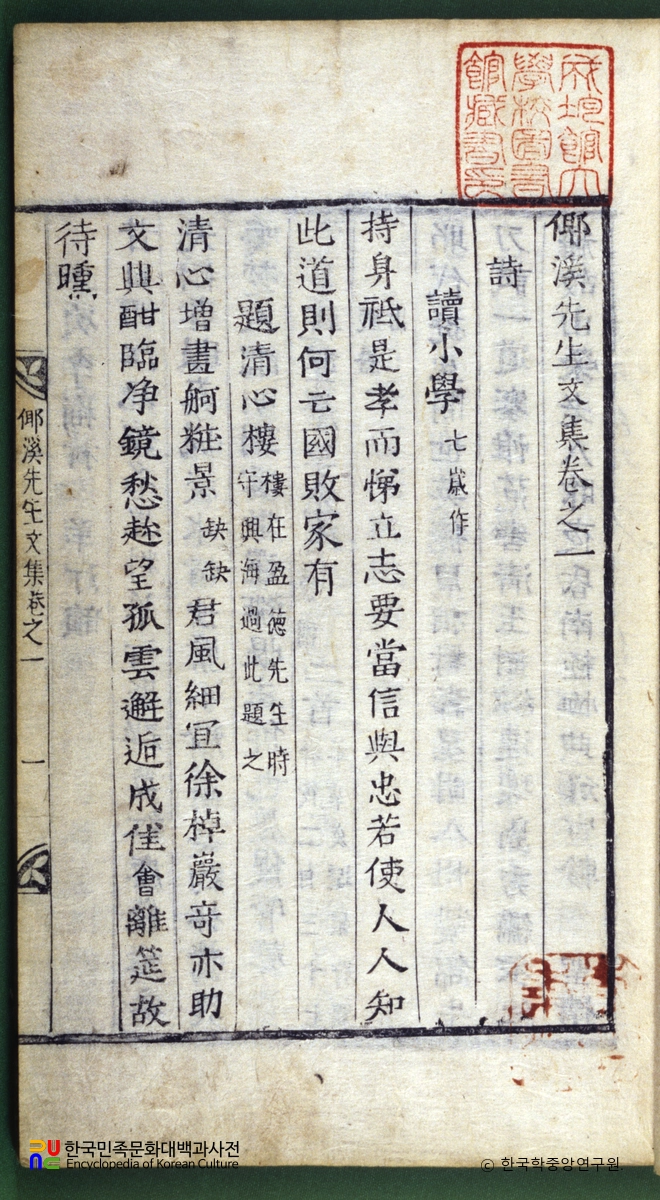 成均館大
學校圖書
館藏書印
倻溪先生文集卷之一
詩
讀小學 七歲作
持身祗是孝而悌立志要當信與忠若使人人知
此道則何云國敗家有
題清心樓 樓在盈德先生時
守興海過此題之
清心增畫舸粧景缺缺君風細宜徐棹巖奇亦助
文興酣臨净鏡愁赴望孤雲邂逅成佳會離筵故
待曛
倻溪先生文集卷之一
一
한국민족문화대백과사전
Encyclopedia of Korean Culture
© 한국학중앙연구원